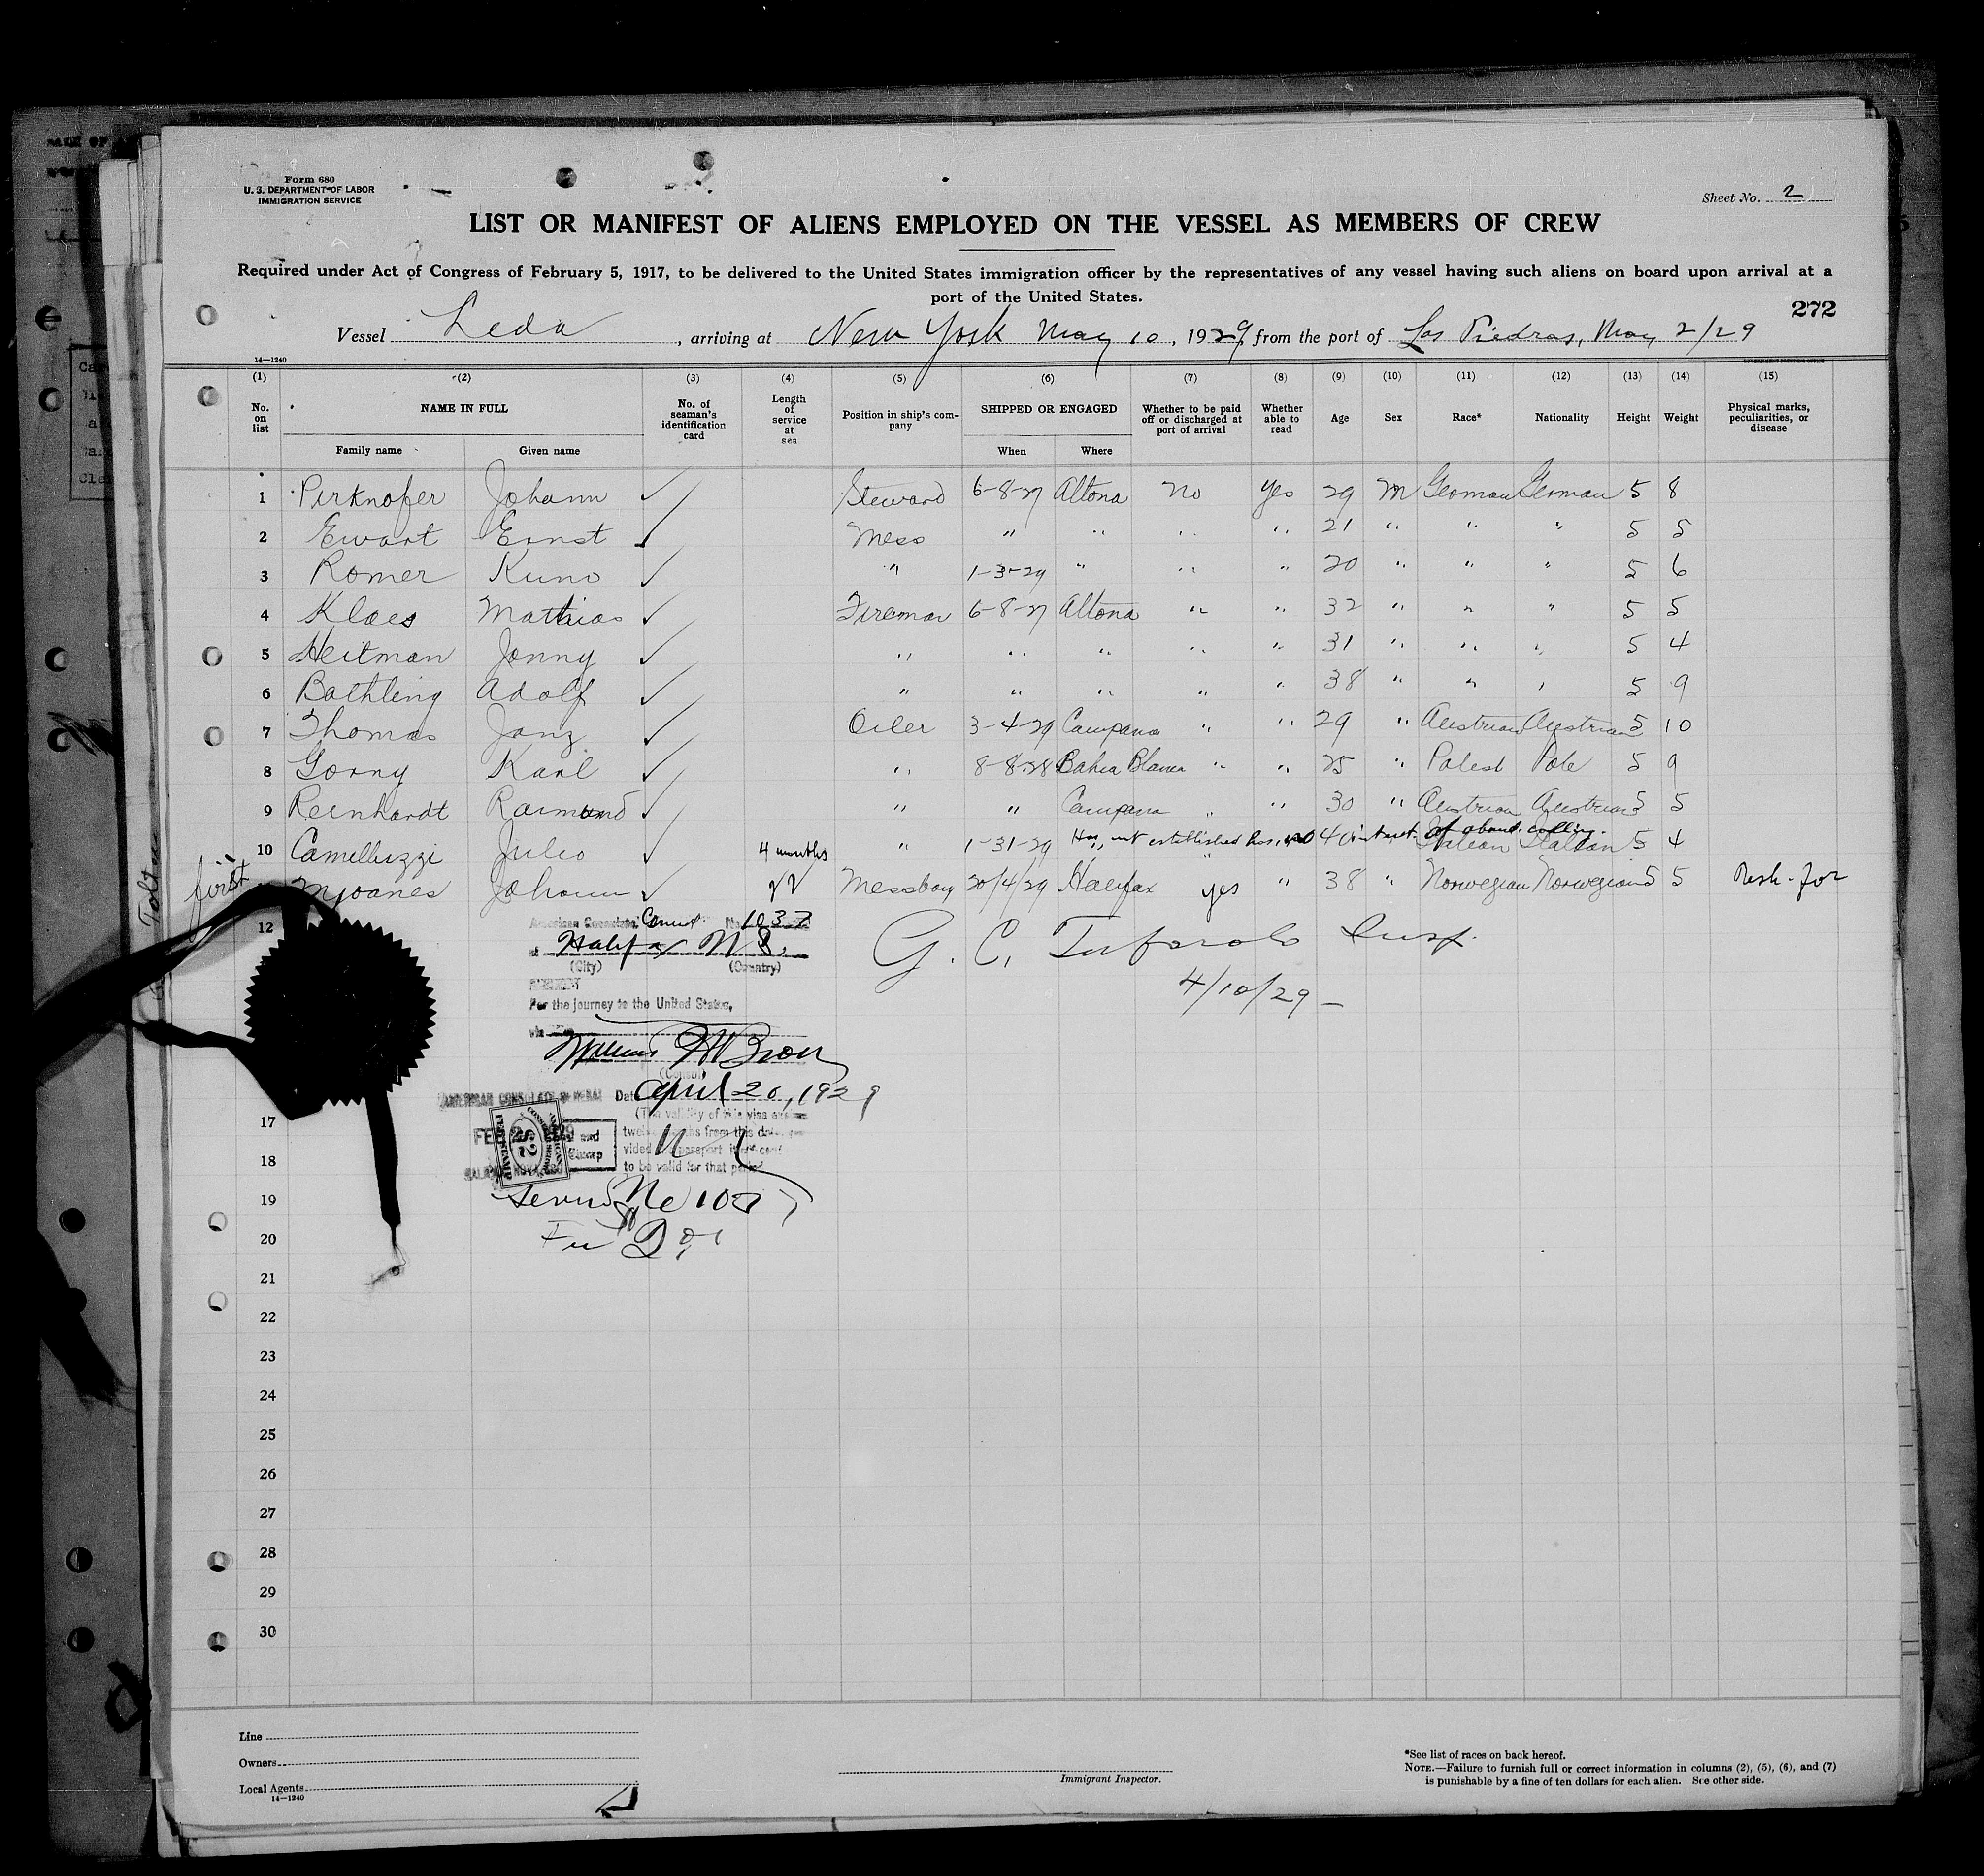 Form 680
U. S. DEPARTMENT OF LABOR
IMMIGRATION SERVICE
Sheet No. 2
LIST OR MANIFEST OF ALIENS EMPLOYED ON THE VESSEL AS MEMBERS OF CREW
Required under Act of Congress of February 5, 1917, to be delivered to the United States immigration officer by the representatives of any vessel having such aliens on board upon arrival at a
port of the United States.
272
Vessel Leda, arriving at New York May 10, 1929, from the port of Las Piedras, May 2/29
14—1240
(1) (2) (3) (4) (5) (6) (7) (8) (9) (10) (11) (12) (13) (14) (15)
No. on list NAME IN FULL No. of seaman's identification card Length of service at sea Position in ship's company SHIPPED OR ENGAGED Whether to be paid off or discharged at port of arrival Whether able to read Age Sex Race* Nationality Height Weight Physical marks, peculiarities, or disease
Family name Given name When Where
1 Pirknofer Johann ✓ Steward 6-8-27 Altona No yes 29 M German German 5 8
2 Ewart Ernst ✓ Mess " " " " 21 " " " 5 5
3 Romer Kuno ✓ " 1-3-29 " " " 20 " " " 5 6
4 Klaes Mathias ✓ Fireman 6-8-27 Altona " " 32 " " " 5 5
5 Heitman Jonny ✓ " " " " " 31 " " " 5 4
6 Bathling Adolf ✓ " " " " " 38 " " " 5 9
7 Thomas Janz ✓ Oiler 3-4-29 Campana " " 29 " Austrian Austrian 5 10
8 Gorny Karl ✓ " 8-8-28 Bahia Blanca " " 25 " Polest Pole 5 9
9 Reinhardt Raimund ✓ " " Campana " " 30 " Austrian Austrian 5 5
10 Camelluzzi Julio ✓ 4 months " 1-31-29 not established 40 Italian Italian 5 4
first Mjoanes Johann ✓ Messboy 20/4/29 Halifax yes " 38 " Norwegian Norwegian 5 5
12 American Consulate No. 1037
at Halifax N S.
(City) (Country)
G. C. Insp.
4/10/29
For the journey to the United States,
via
(Consul)
AMERICAN CONSULATE GENERAL Date April 20, 1929
(The validity of this visa
17 twelve months from this date
vided passport
18 to be valid for that period
19 Service No 1037
20 Fee
21
22
23
24
25
26
27
28
29
30
Line
Owners
Local Agents
14—1240
Immigrant Inspector.
*See list of races on back hereof.
NOTE.—Failure to furnish full or correct information in columns (2), (5), (6), and (7)
is punishable by a fine of ten dollars for each alien. See other side.